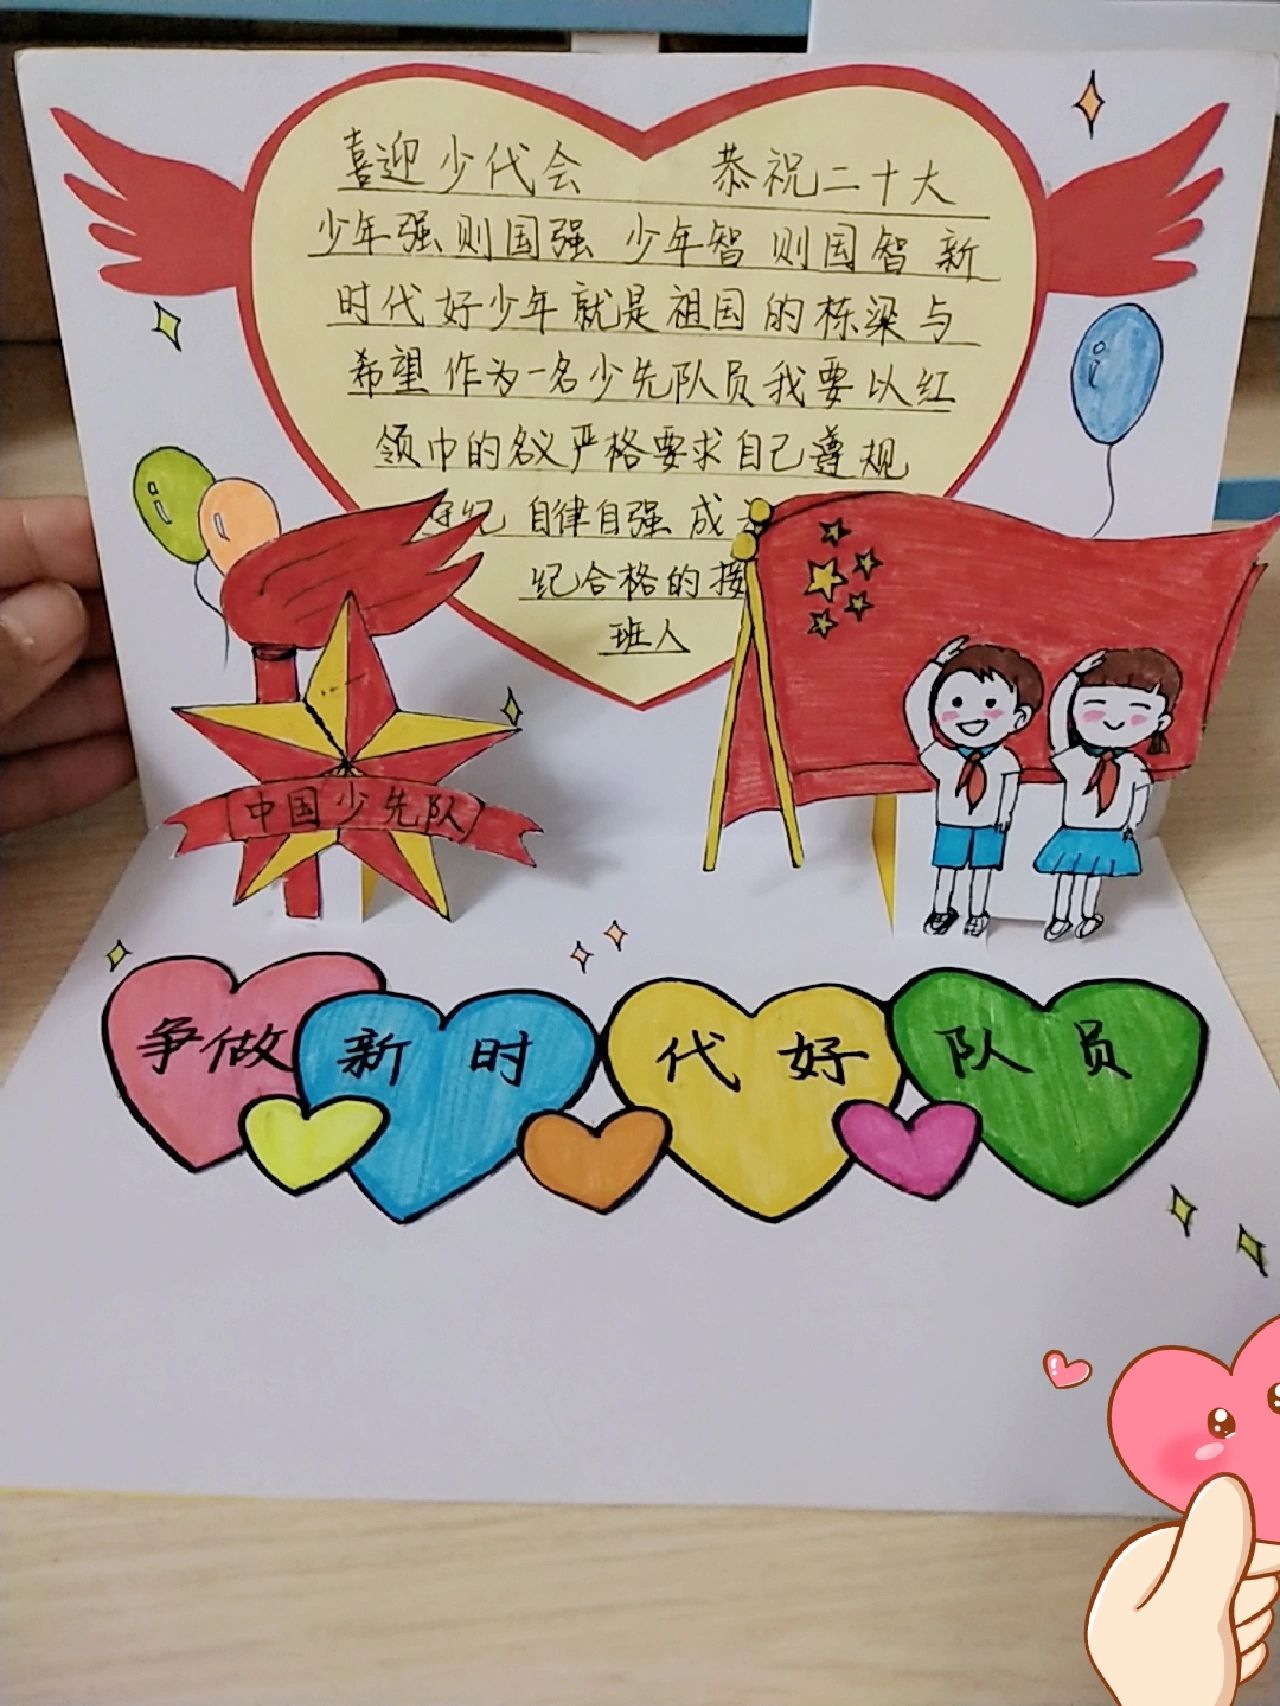 喜迎少代会 恭祝二十大
少年强则国强 少年智则国智 新
时代好少年就是祖国的栋梁与
希望 作为一名少先队员我要以红
领巾的名义严格要求自己遵规
守纪 自律自强 成
纪合格的接
班人
中国少先队
争做 新时 代好 队员